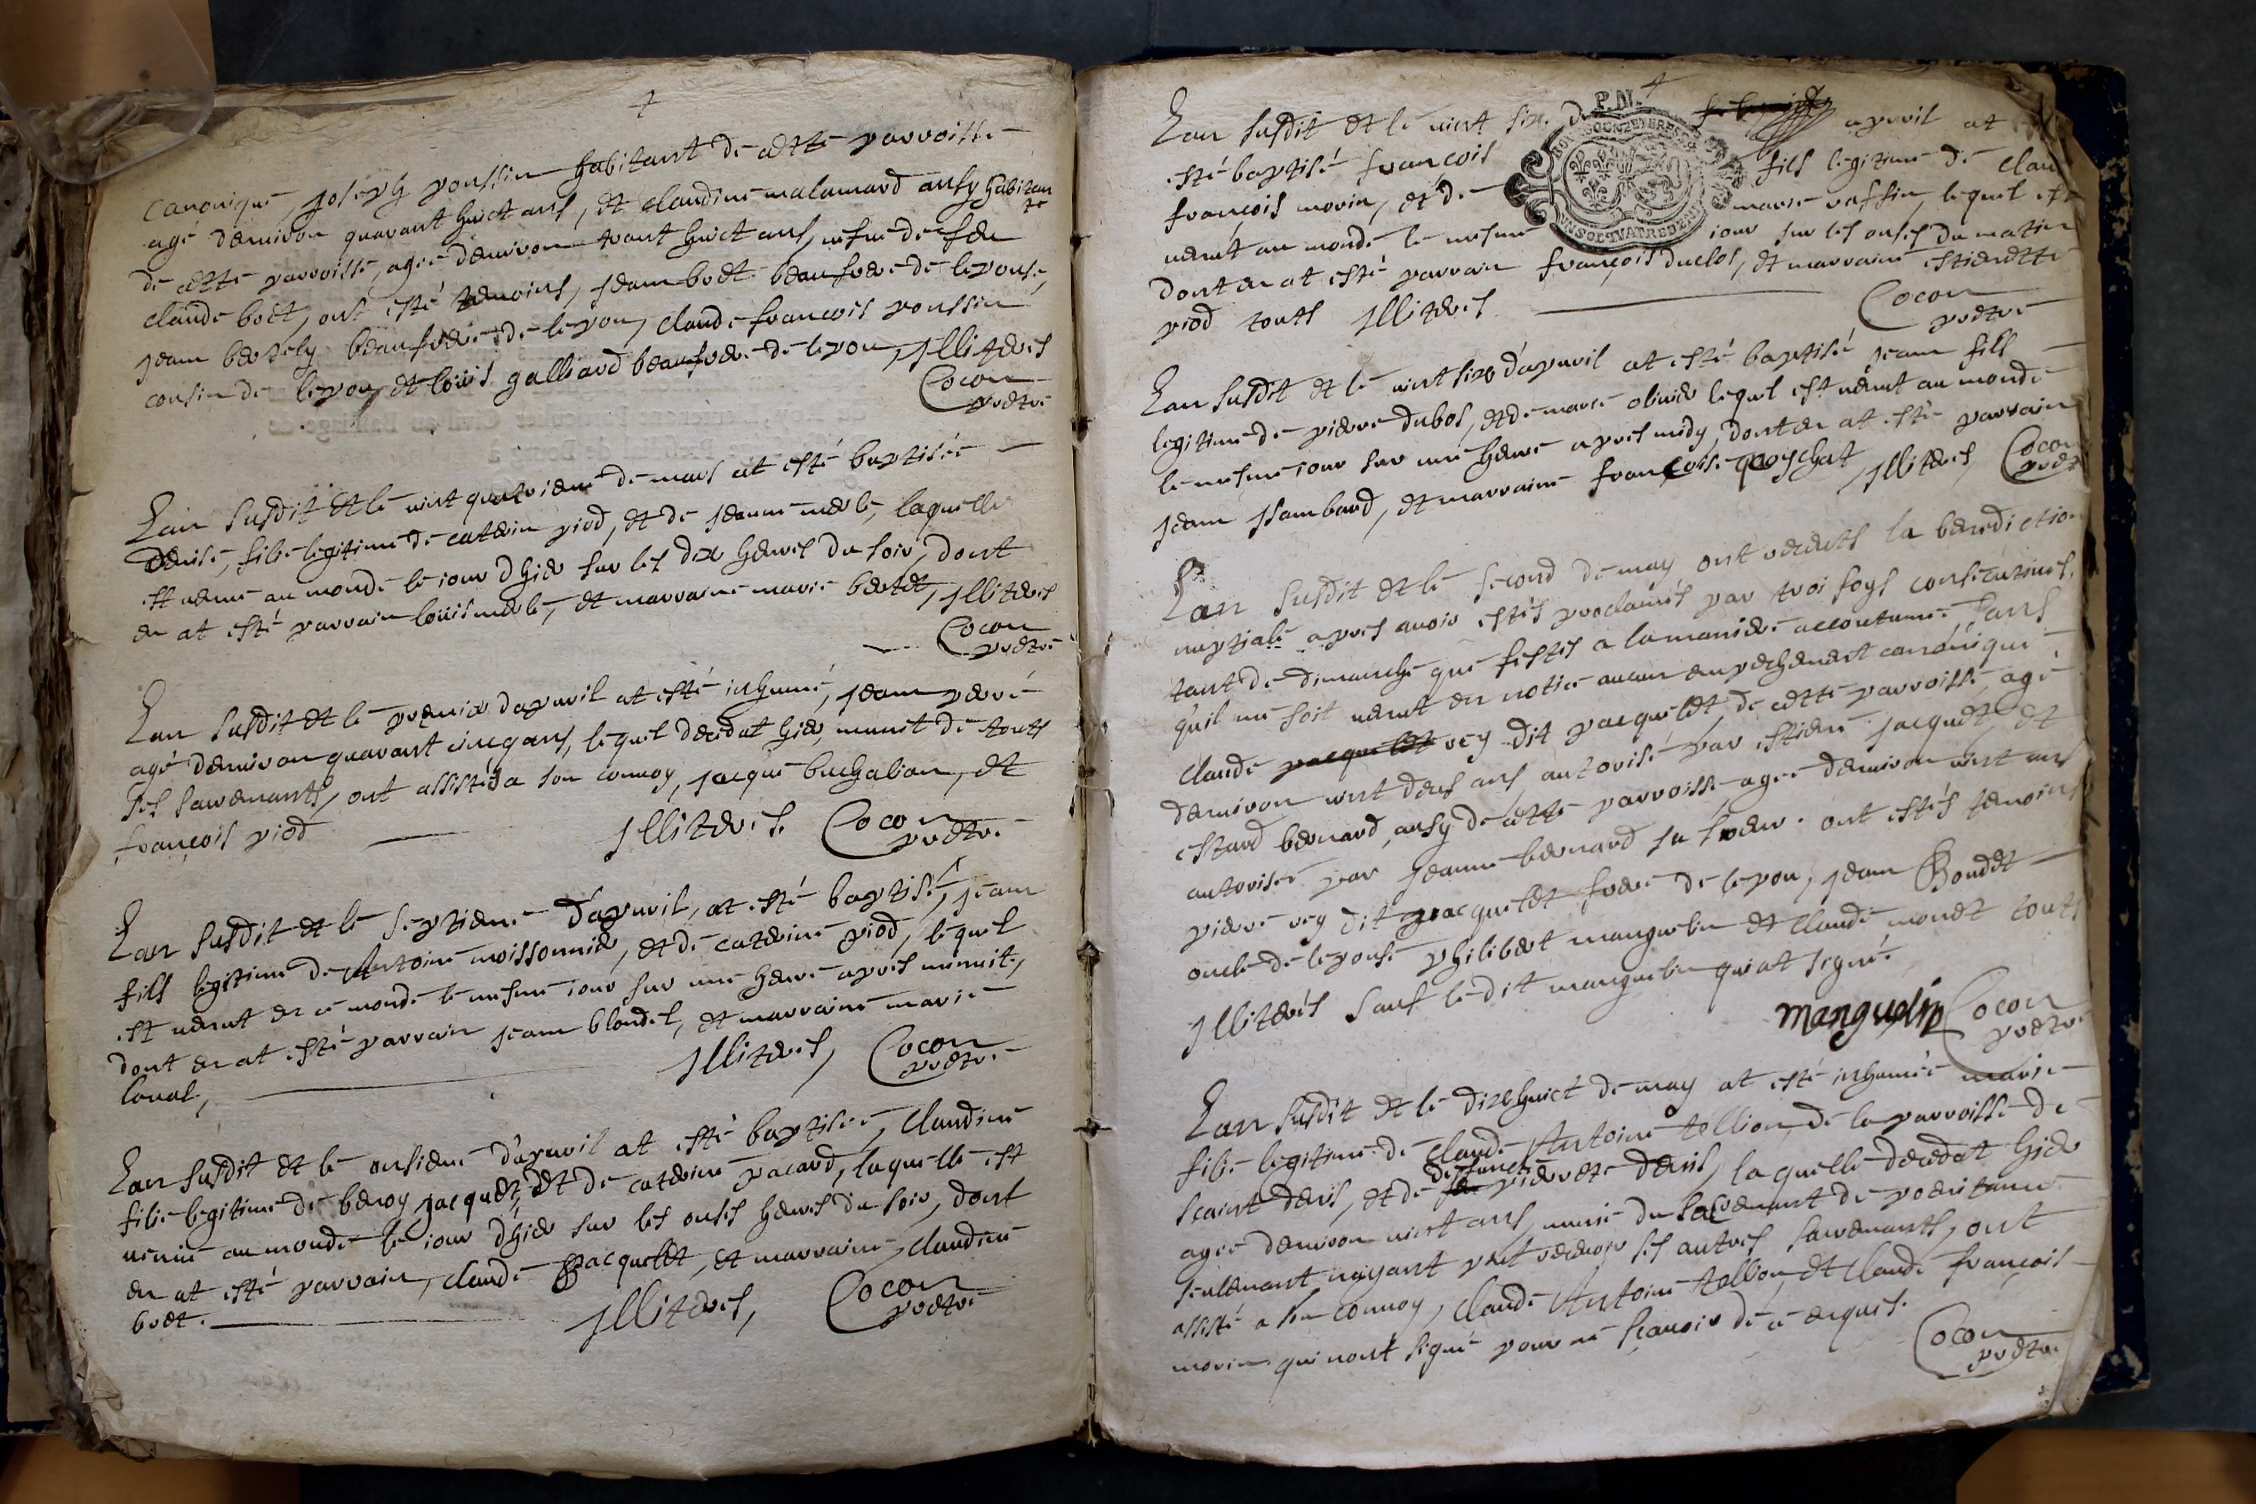 canonique, joseph poussin habitant de cette parroisse
agé denuiron quarant huict ans, et claudine malamard ausy habitan
te
de cette parroisse, agée denuiron trant huict ans, vefue de feu
claude boét, ont esté temoins, jean boét beaufrere de lepouse,
jean bertely beaufrere de lepou, claude francois poussin
cousin de lepou, et loüis galliard beaufrere de lepou, jlliteres
Cocon
pretre
Lan susdit et le vint quatrieme de mars at esté baptisée
denise, filie legitime de caterin piod, et de jeanne merle, laquelle
est venue au monde le iour dhier sur les dix heures du soir, dont
en at esté parrain loüis merle, et marraine marie bertet, jlliteres
Cocon
pretre
Lan susdit et le premier dapuril at esté inhumé, jean perré
agé denuiron quarant cinq ans, lequel decedat hier, munit de touts
ses sacremants, ont assistés a son conuoy, jacque buchalion, et
françois piod
jlliteres. Cocon
pretre
Lan susdit et le septieme d'apuril, at esté baptisé, jean
fils legitime de Antoine moissonnier, et de caterine piod, lequel
est venut en ce monde le mesme iour sur une heure apres minuit,
dont en at esté parrain jean blondel, et marraine marie
laual,
jlliteres, Cocon
pretre
Lan susdit et le onsieme d'apuril at esté baptisée, claudine
filie legitime de benoy jacquet, et de caterine pacard, laquelle est
venue au monde le iour dhier sur les onses heures du soir, dont
en at esté parrain, claude jacquet, et marraine claudine
boet.
jlliteres, Cocon
pretre
Lan susdit et le vint six de apuril at
esté baptisé francois fils legitime de clau
françois morin, et de marie raffin, lequel est
venut au monde le mesme iour sur les onses du matin
dont en at esté parrain françois duclos, et marraine estienette
piod touts jlliteres
Cocon
pretre
Lan susdit et le vint six d'apuril at esté baptisé jean fils
legitime de pierre dubos, et de marie oliuier lequel est venut au monde
le mesme iour sur une heure apres midy, dont en at esté parrain
jean jsambard, et marraine françoise poychat jlliteres Cocon
pretre
Lan susdit et le second de may ont receuts la benediction
nuptiale apres auoir estés proclamés par troi foys consecutiues,
tant de dimanche que festes a la maniere accoutumée, sans
quil me soit venut en notice aucun enpechemant canonique
claude vey dit pacquelet, de cette parroisse, agé
denuiron vint deus ans, autorisé par estiene jacquet, et
bernard, ausy de cette parroisse agée denuiron vint ans
autorisée par jeanne bernard sa seur. ont estés temoins
pierre vey dit pacquelet frere de lepou, jean Boudet
oncle de lepouse philibert manguelin et claude monet touts
jlliterés sauf le dit manguelin qui at signé.
manguelin Cocon
pretre
Lan susdit et le dixhuict de may at esté inhumée marie
filie legitime de claude Antoine tellion, de la parroisse de
scaint denis, et de defuncte pierrete denis, laquelle decedat hier
agée denuiron vint ans, munie du sacremant de poenitance
seulemant nayant peut receuoir ses autres sacremants, ont
assisté a son conuoy, claude Antoine tellion, et claude françois
morin qui nont signé pour ne sçauoir de ce enquis.
Cocon
pretre